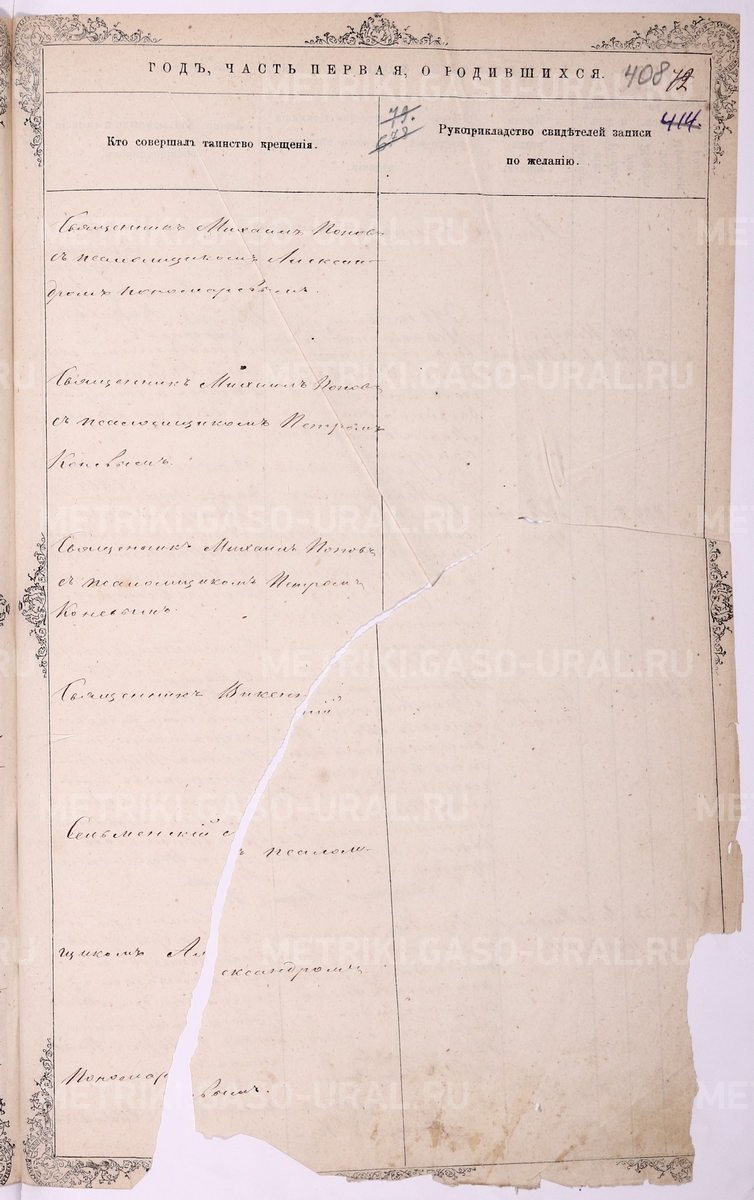 ГОДЪ, ЧАСТЬ ПЕРВАЯ, О РОДИВШИХСЯ.
408 72
Кто совершалъ таинство крещенія.
79.
678
Рукоприкладство свидѣтелей записи
по желанію.
414
Священникъ Михаилъ Поповъ
съ псаломщикомъ Алексан-
дромъ Пономаревымъ.
Священникъ Михаилъ Поповъ
съ псаломщикомъ Петромъ
Коневымъ.
Священникъ Михаилъ Поповъ
съ псаломщикомъ Петромъ
Коневымъ.
Священникъ Викентій
Сельменскій съ псалом-
щикомъ Александромъ
Пономаревымъ.
METRIKI.GASO-URAL.RU